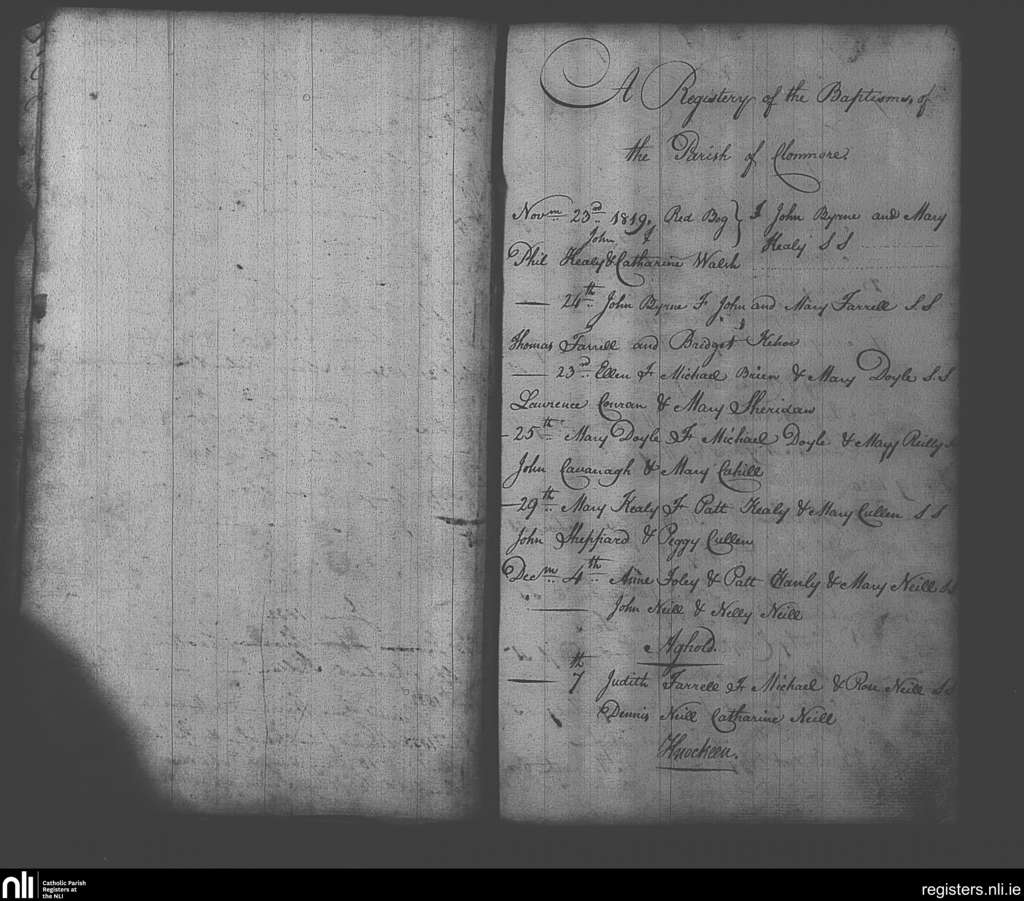 A Registery of the Baptisms, of
the Parish of Clonmore.
Novm 23rd 1819. Red Bog } F John Byrne and Mary
John F Healy S S
Phil Healy & Catharine Walsh
— 24th John Byrne Fr John and Mary Farrell S.S
Thomas Farrell and Bridget Kehoe
— 23rd Ellen Fr Michael Brien & Mary Doyle S.S
Lawrence Conran & Mary Sheridan
— 25th Mary Doyle Fr Michael Doyle & Mary Reilly
John Cavanagh & Mary Cahill
— 29th Mary Healy Fr Patt Healy & Mary Cullen S S
John Sheppard & Peggy Cullen
Decm 4th Anne Foley & Patt Hanly & Mary Neill S.S
— John Neill & Nelly Neill
Aghold.
— 7th Judith Farrell Fr Michael & Rose Neill S.S
Dennis Neill Catharine Neill
Knockeen.
nli Catholic Parish
Registers at
the NLI
registers.nli.ie